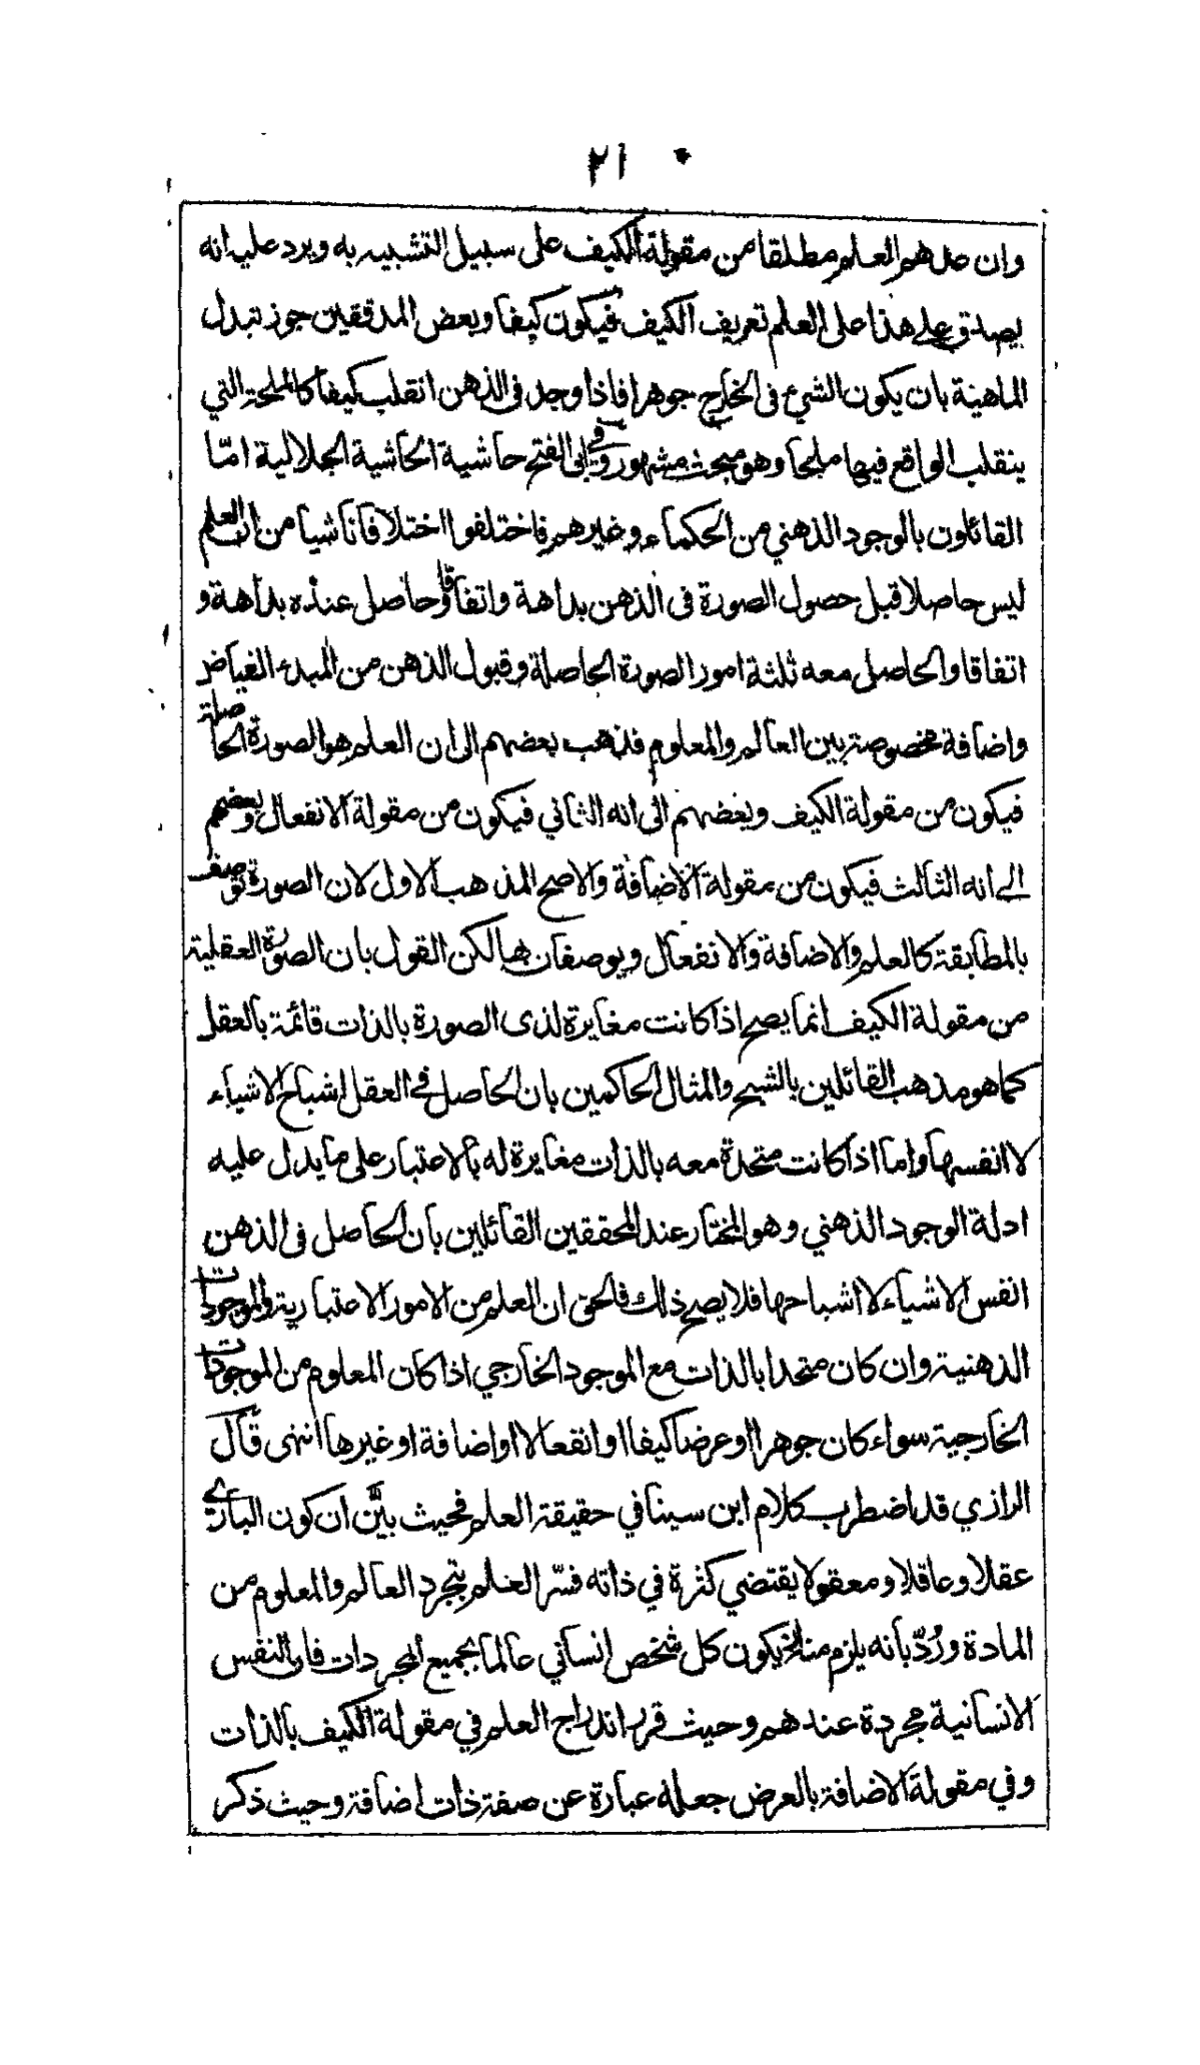 ٢١
وان عدهم العلم مطلقا من مقولة الكيف على سبيل التشبيه به ويرد عليه انه
يصدق على هذا على العلم تعريف الكيف فيكون كيفا وبعض المدققين جوز تبدل
الماهية بان يكون الشئ فى الخارج جوهرا فاذا وجد فى الذهن انقلب كيفا كالملحة التي
ينقلب الواقع فيها ملحا وهو مبحث مشهور وفي ابى الفتح حاشية الحاشية الجلالية امّا
القائلون بالوجود الذهني من الحكماء وغيرهم فاختلفوا اختلافا ناشيا من ان العلم
ليس حاصلا قبل حصول الصورة فى الذهن بداهة واتفاقا وحاصل عنده بداهة و
اتفاقا والحاصل معه ثلثة امور الصورة الحاصلة وقبول الذهن من المبدء الفياض
واضافة مخصوصة بين العالم والمعلوم فذهب بعضهم الى ان العلم هو الصورة الحاصلة
فيكون من مقولة الكيف وبعضهم الى انه الثاني فيكون من مقولة الانفعال وبعضهم
الى انه الثالث فيكون من مقولة الاضافة والاصح المذهب الاول لان الصورة توصف
بالمطابقة كالعلم والاضافة والانفعال ويوصفان بها لكن القول بان الصورة العقلية
من مقولة الكيف انما يصح اذا كانت مغايرة لذى الصورة بالذات قائمة بالعقل
كما هو مذهب القائلين بالشبح والمثال الحاكمين بان الحاصل في العقل اشباح الاشياء
لا انفسها واما اذا كانت متحدة معه بالذات مغايرة له بالاعتبار على ما يدل عليه
ادلة الوجود الذهني وهو المختار عند المحققين القائلين بان الحاصل فى الذهن
انفس الاشياء لا اشباحها فلا يصح ذلك فالحق ان العلم من الامور الاعتبارية والموجودات
الذهنية وان كان متحدا بالذات مع الموجود الخارجي اذا كان المعلوم من الموجودات
الخارجية سواء كان جوهرا او عرضا كيفا او انفعالا او اضافة او غيرها انتهى قال
الرازي قد اضطرب كلام ابن سينا في حقيقة العلم فحيث بيّن ان كون البارى
عقلا وعاقلا ومعقولا يقتضي كثرة في ذاته فسّر العلم بتجرد العالم والمعلوم من
المادة ورُدّ بانه يلزم منه ان يكون كل شخص انساني عالما بجميع المجردات فان النفس
الانسانية مجردة عندهم وحيث قرر اندراج العلم في مقولة الكيف بالذات
وفي مقولة الاضافة بالعرض جعله عبارة عن صفة ذات اضافة وحيث ذكر